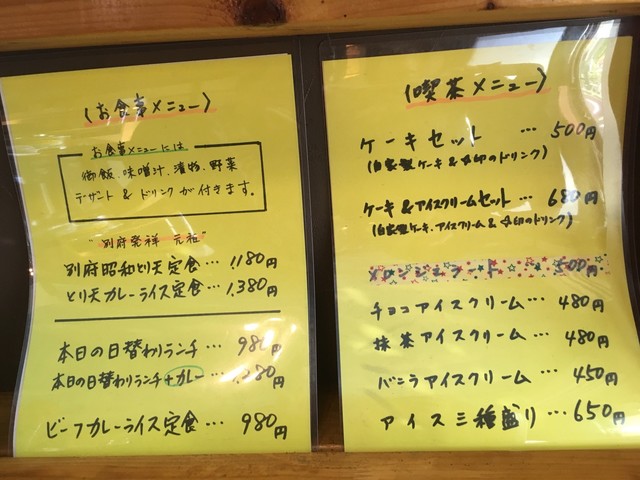 〈お食事メニュー〉
お食事メニューには
御飯、味噌汁、漬物、野菜
デザート & ドリンクが付きます。
"別府発祥 元祖"
別府昭和とり天定食…1,180円
とり天カレーライス定食…1,380円
本日の日替わりランチ…980円
本日の日替わりランチ+カレー…1,380円
ビーフカレーライス定食…980円
〈喫茶メニュー〉
ケーキセット …500円
(自家製ケーキ&☆印のドリンク)
ケーキ&アイスクリームセット …680円
(自家製ケーキ、アイスクリーム&☆印のドリンク)
500円
チョコアイスクリーム…480円
抹茶アイスクリーム…480円
バニラアイスクリーム…450円
アイス三種盛り…650円